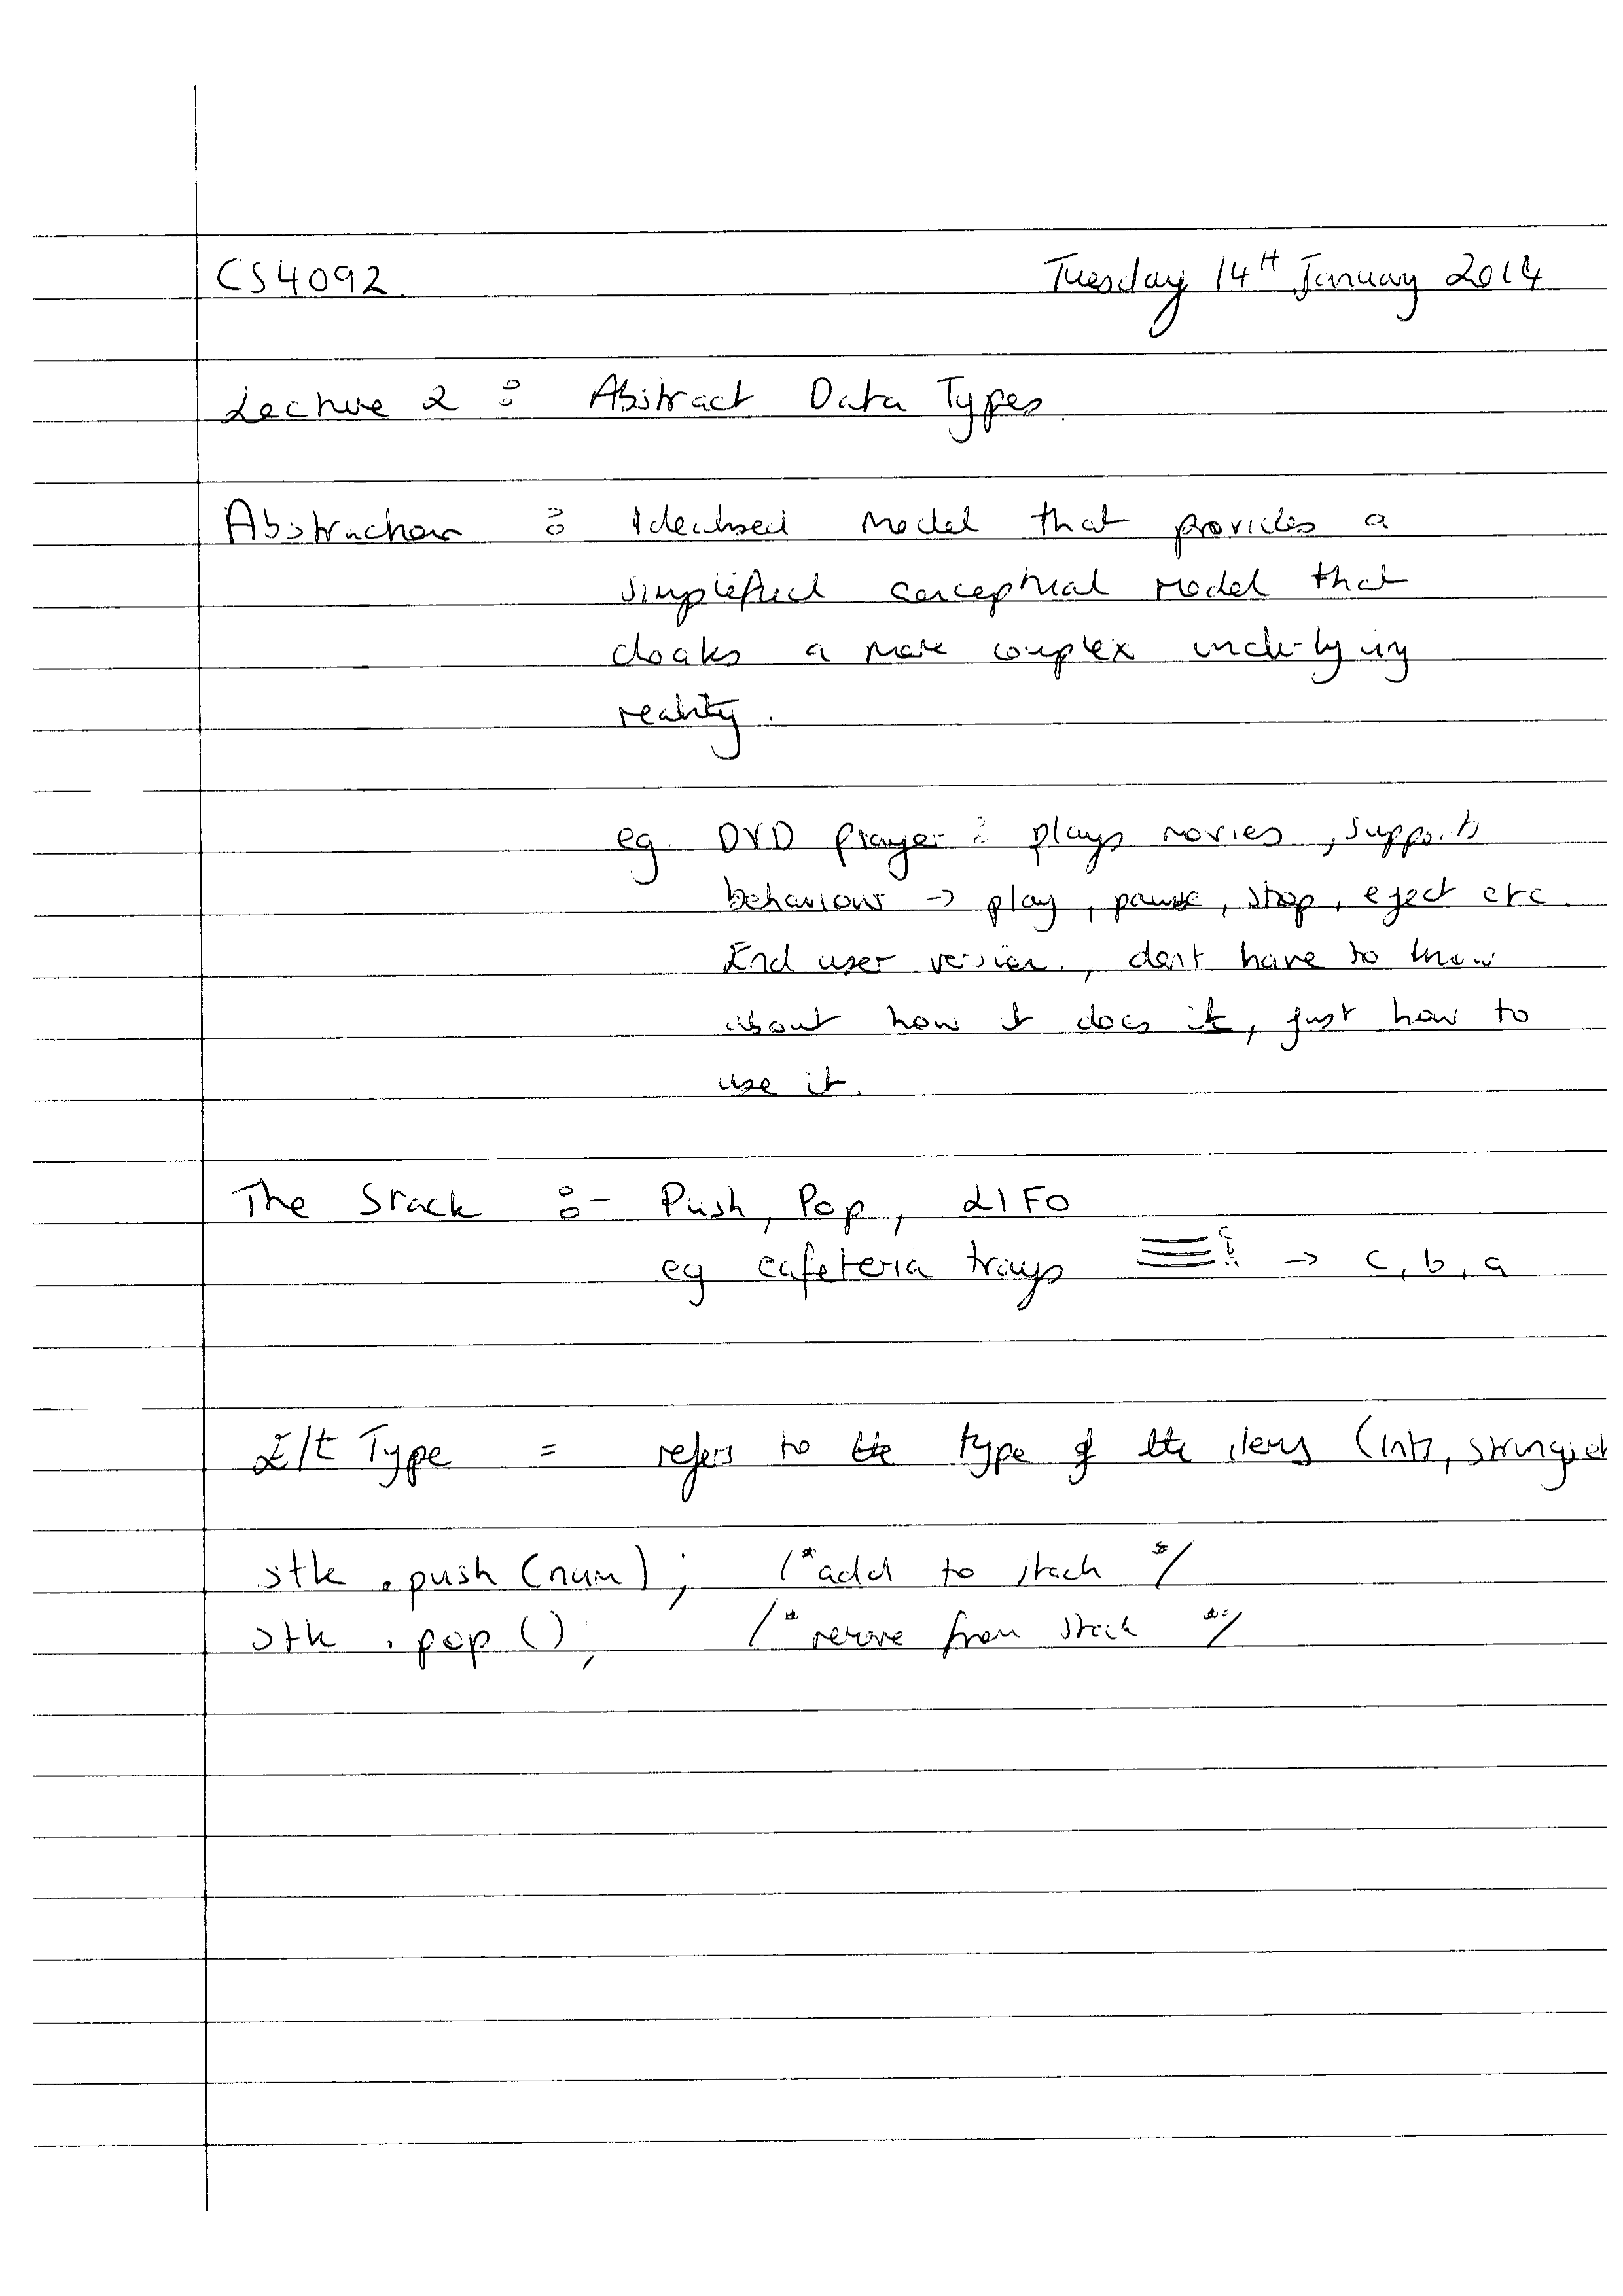 CS4092. Tuesday 14th January 2014
Lecture 2 : Abstract Data Types.
Abstraction : Idealised model that provides a
simplified conceptual model that
cloaks a more complex underlying
reality.
eg. DVD player : plays movies, supports
behaviour -> play, pause, stop, eject etc.
End user version., dont have to know
about how it does it, just how to
use it.
The Stack :- Push, Pop, LIFO
eg cafeteria trays → c, b, a
Elt Type = refers to the type of the items (ints, strings, et
stk .push (num); /* add to stack */
stk .pop (); /* remove from stack */